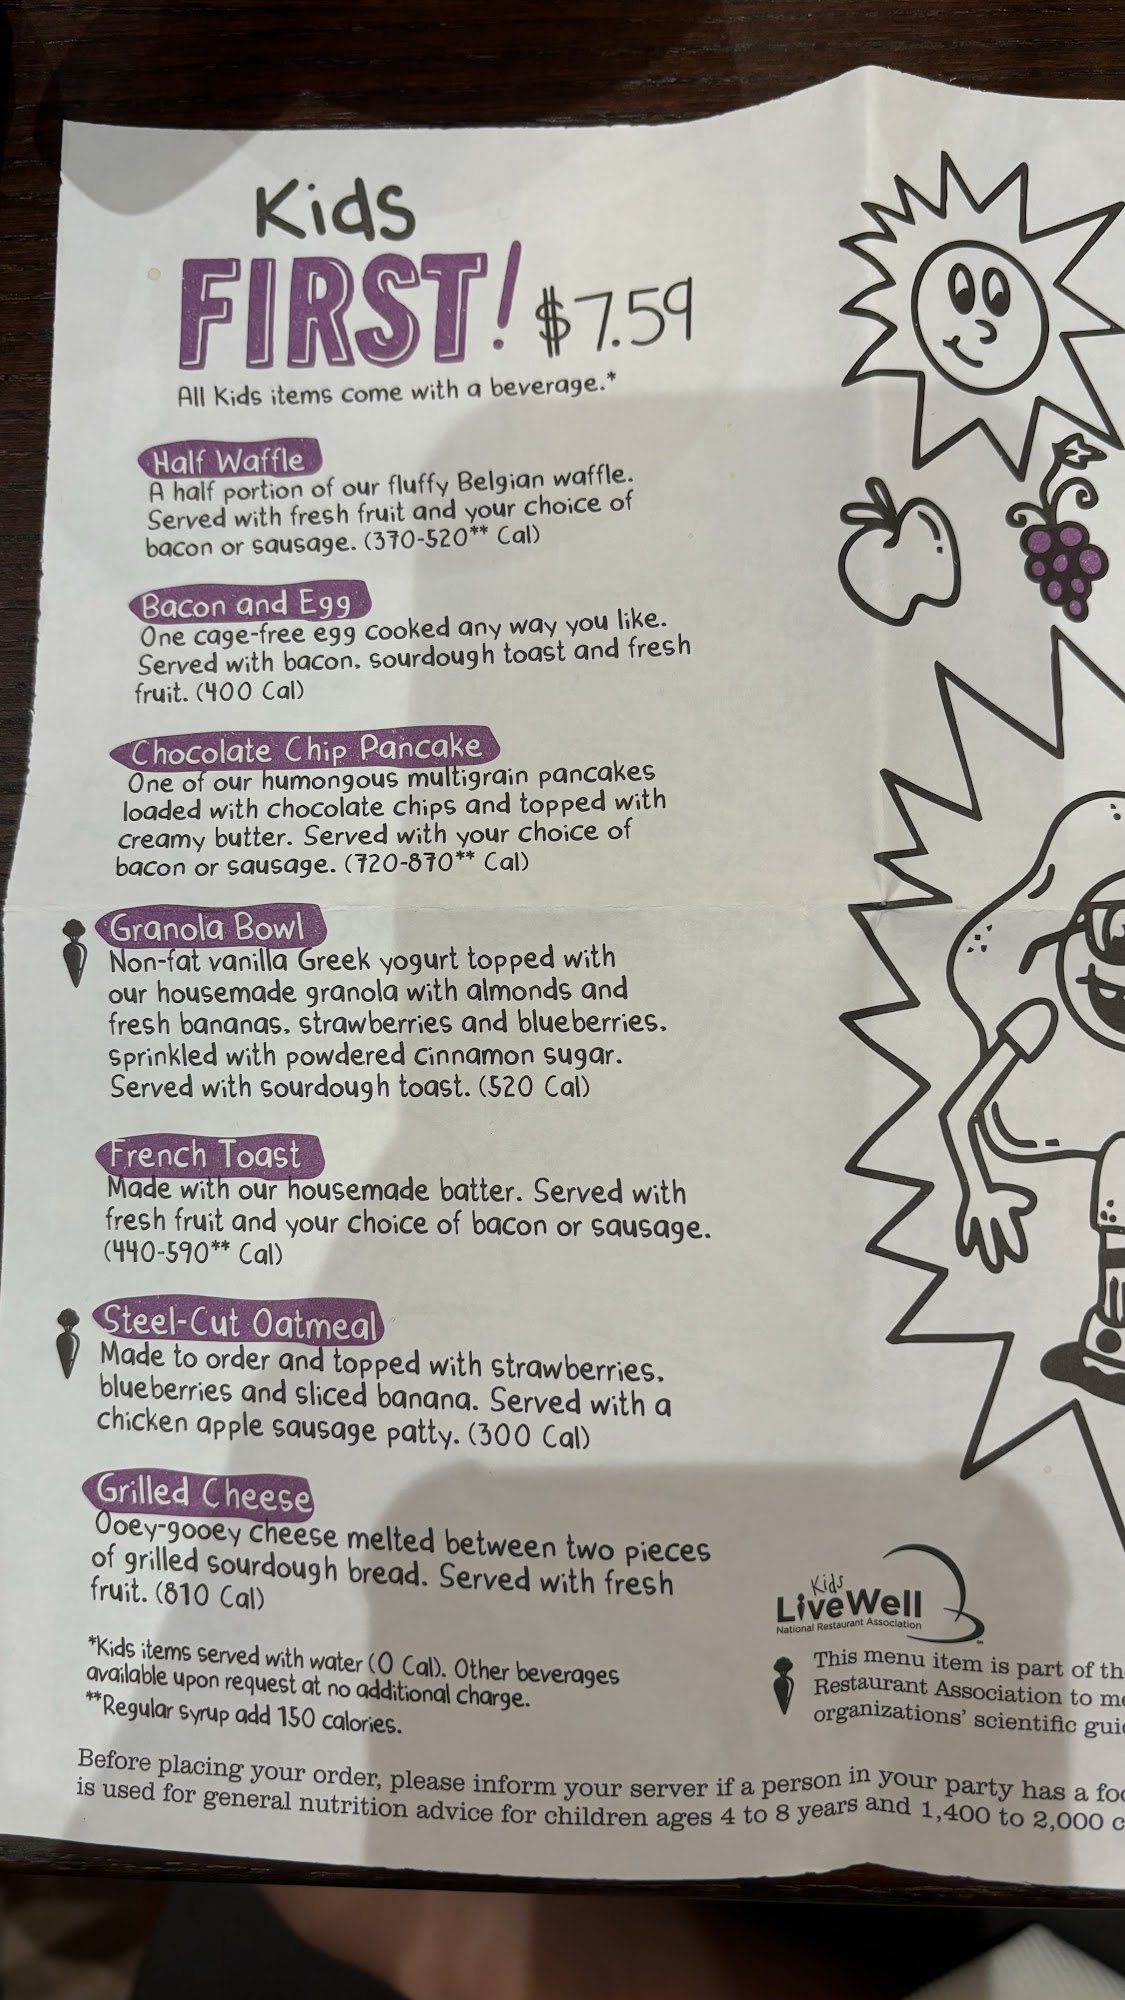 Kids
FIRST! $7.59
All Kids items come with a beverage.*
Half Waffle
A half portion of our fluffy Belgian waffle.
Served with fresh fruit and your choice of
bacon or sausage. (370-520** Cal)
Bacon and Egg
One cage-free egg cooked any way you like.
Served with bacon, sourdough toast and fresh
fruit. (400 Cal)
Chocolate Chip Pancake
One of our humongous multigrain pancakes
loaded with chocolate chips and topped with
creamy butter. Served with your choice of
bacon or sausage. (720-870** Cal)
Granola Bowl
Non-fat vanilla Greek yogurt topped with
our housemade granola with almonds and
fresh bananas, strawberries and blueberries,
sprinkled with powdered cinnamon sugar.
Served with sourdough toast. (520 Cal)
French Toast
Made with our housemade batter. Served with
fresh fruit and your choice of bacon or sausage.
(440-590** Cal)
Steel-Cut Oatmeal
Made to order and topped with strawberries,
blueberries and sliced banana. Served with a
chicken apple sausage patty. (300 Cal)
Grilled Cheese
Ooey-gooey cheese melted between two pieces
of grilled sourdough bread. Served with fresh
fruit. (810 Cal)
*Kids items served with water (0 Cal). Other beverages
available upon request at no additional charge.
**Regular syrup add 150 calories.
Kids
LiveWell
National Restaurant Association
This menu item is part of
Restaurant Association to
organizations' scientific
Before placing your order, please inform your server if a person in your party has a
is used for general nutrition advice for children ages 4 to 8 years and 1,400 to 2,000